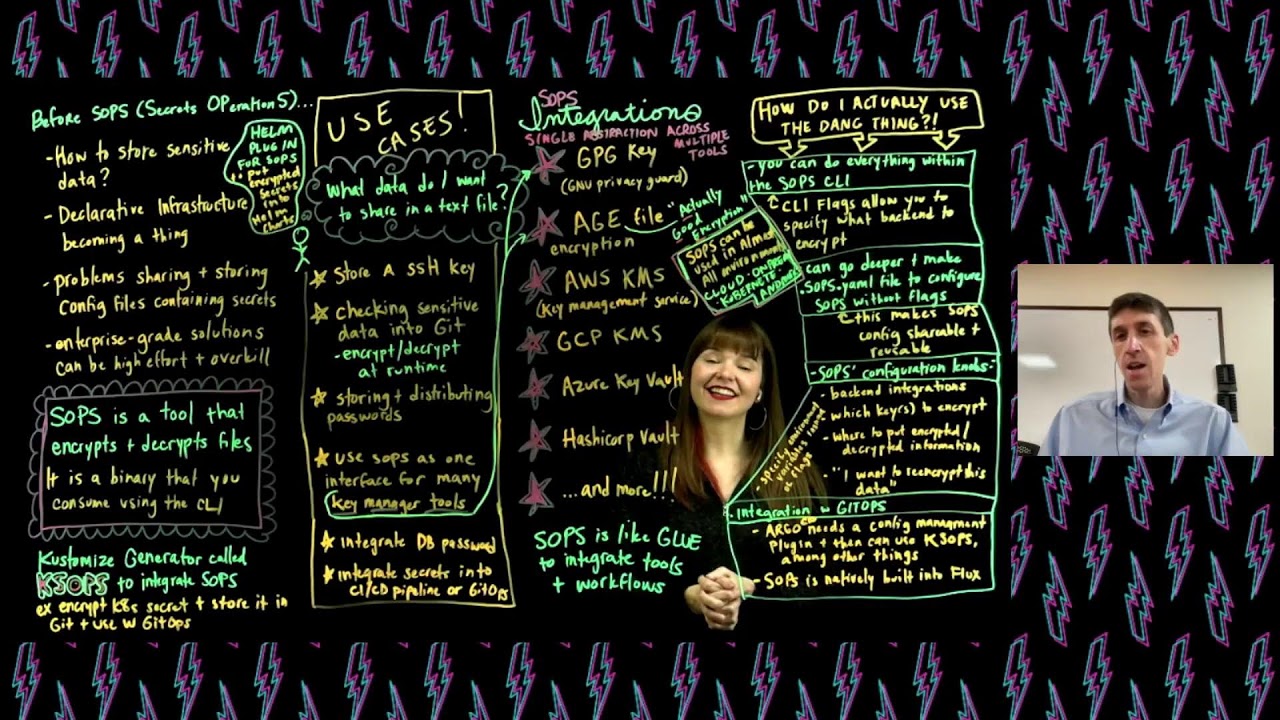 Before SOPS (Secrets OPerationS)...
-How to store sensitive
data?
- Declarative Infrastructure
becoming a thing
-problems sharing + storing
Config files containing secrets
-enterprise-grade solutions
can be high effort + overkill
HELM
PLUG IN
FOR SOPS
Put
encrypted
Secrets
into
Helm
charts
SOPS is a tool that
encrypts + decrypts files
It is a binary that you
consume using the CLI
Kustomize Generator called
KSOPS to integrate SOPS
ex encrypt K8s secret + store it in
Git + use w GitOps
USE
CASES!
What data do I want
to share in a text file?
Store A SSH key
checking sensitive
data into Git
-encrypt/decrypt
at runtime
storing + distributing
passwords
use sops as one
interface for many
key manager tools
integrate DB password
integrate secrets into
CI/CD pipeline or GitOps
SOPS
Integrations
SINGLE ABSTRACTION ACROSS
MULTIPLE
TOOLS
GPG Key
(GNU privacy guard)
AGE file
encryption
"Actually
Good
Encryption"
AWS KMS
(Key management service)
GCP KMS
Azure Key Vault
Hashicorp Vault
...and more!!!
SOPS is like GLUE
to integrate tools
+ workflows
SOPS can be
used in Almost
All environments
CLOUD - ONPREM
KUBERNETES
HOW DO I ACTUALLY USE
THE DANG THING?!
-you can do everything within
the SOPS CLI
CLI Flags allow you to
specify what backend to
encrypt
can go deeper + make
.SOPS.yaml file to configure
SOPS without flags
this makes SOPS
config sharable +
reusable
-SOPS' configuration knobs-
- backend integrations
which key(s) to encrypt
- where to put encrypted/
decrypted information
- "I want to reencrypt this
data"
- specify environment
variables instead
of flags
. integration w GITOPS
- ARGO CD needs a config managment
plugin + then can use KSOPS,
among other things
- SOPS is natively built into Flux